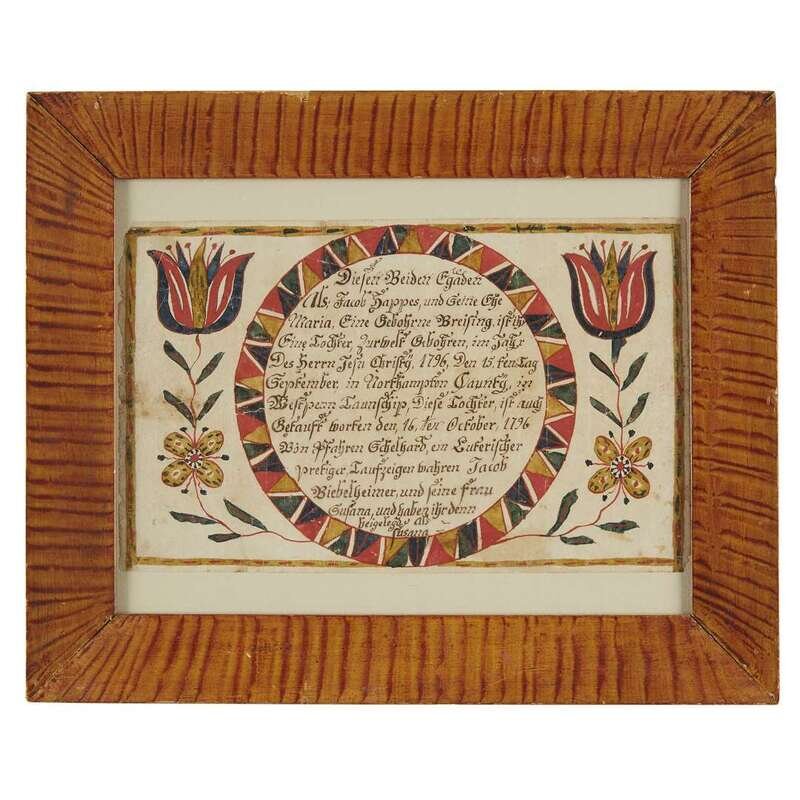 Diesen Beiden Egaden
Als, Jacob Happes, und Seine Ehe
Maria, Eine Gebohrne Breising, ist ihr
Eine Tochter, Zurwelt Gebohren, im Jahr
Des Herrn Jesu Christy, 1796, Den 15, ten Tag
September, in Northampton Caunty, in
Westpenn Taunschip, Diese Tochter, ist auch
Getauft worten den, 16, ten October, 1796
Von Pfahren Schelhard, ein Luterischer
pretiger, Taufzeigen wahren Jacob
Biebelheimer, und seine frau
Susana, und haben ihr denn
beigelegd als
Susana